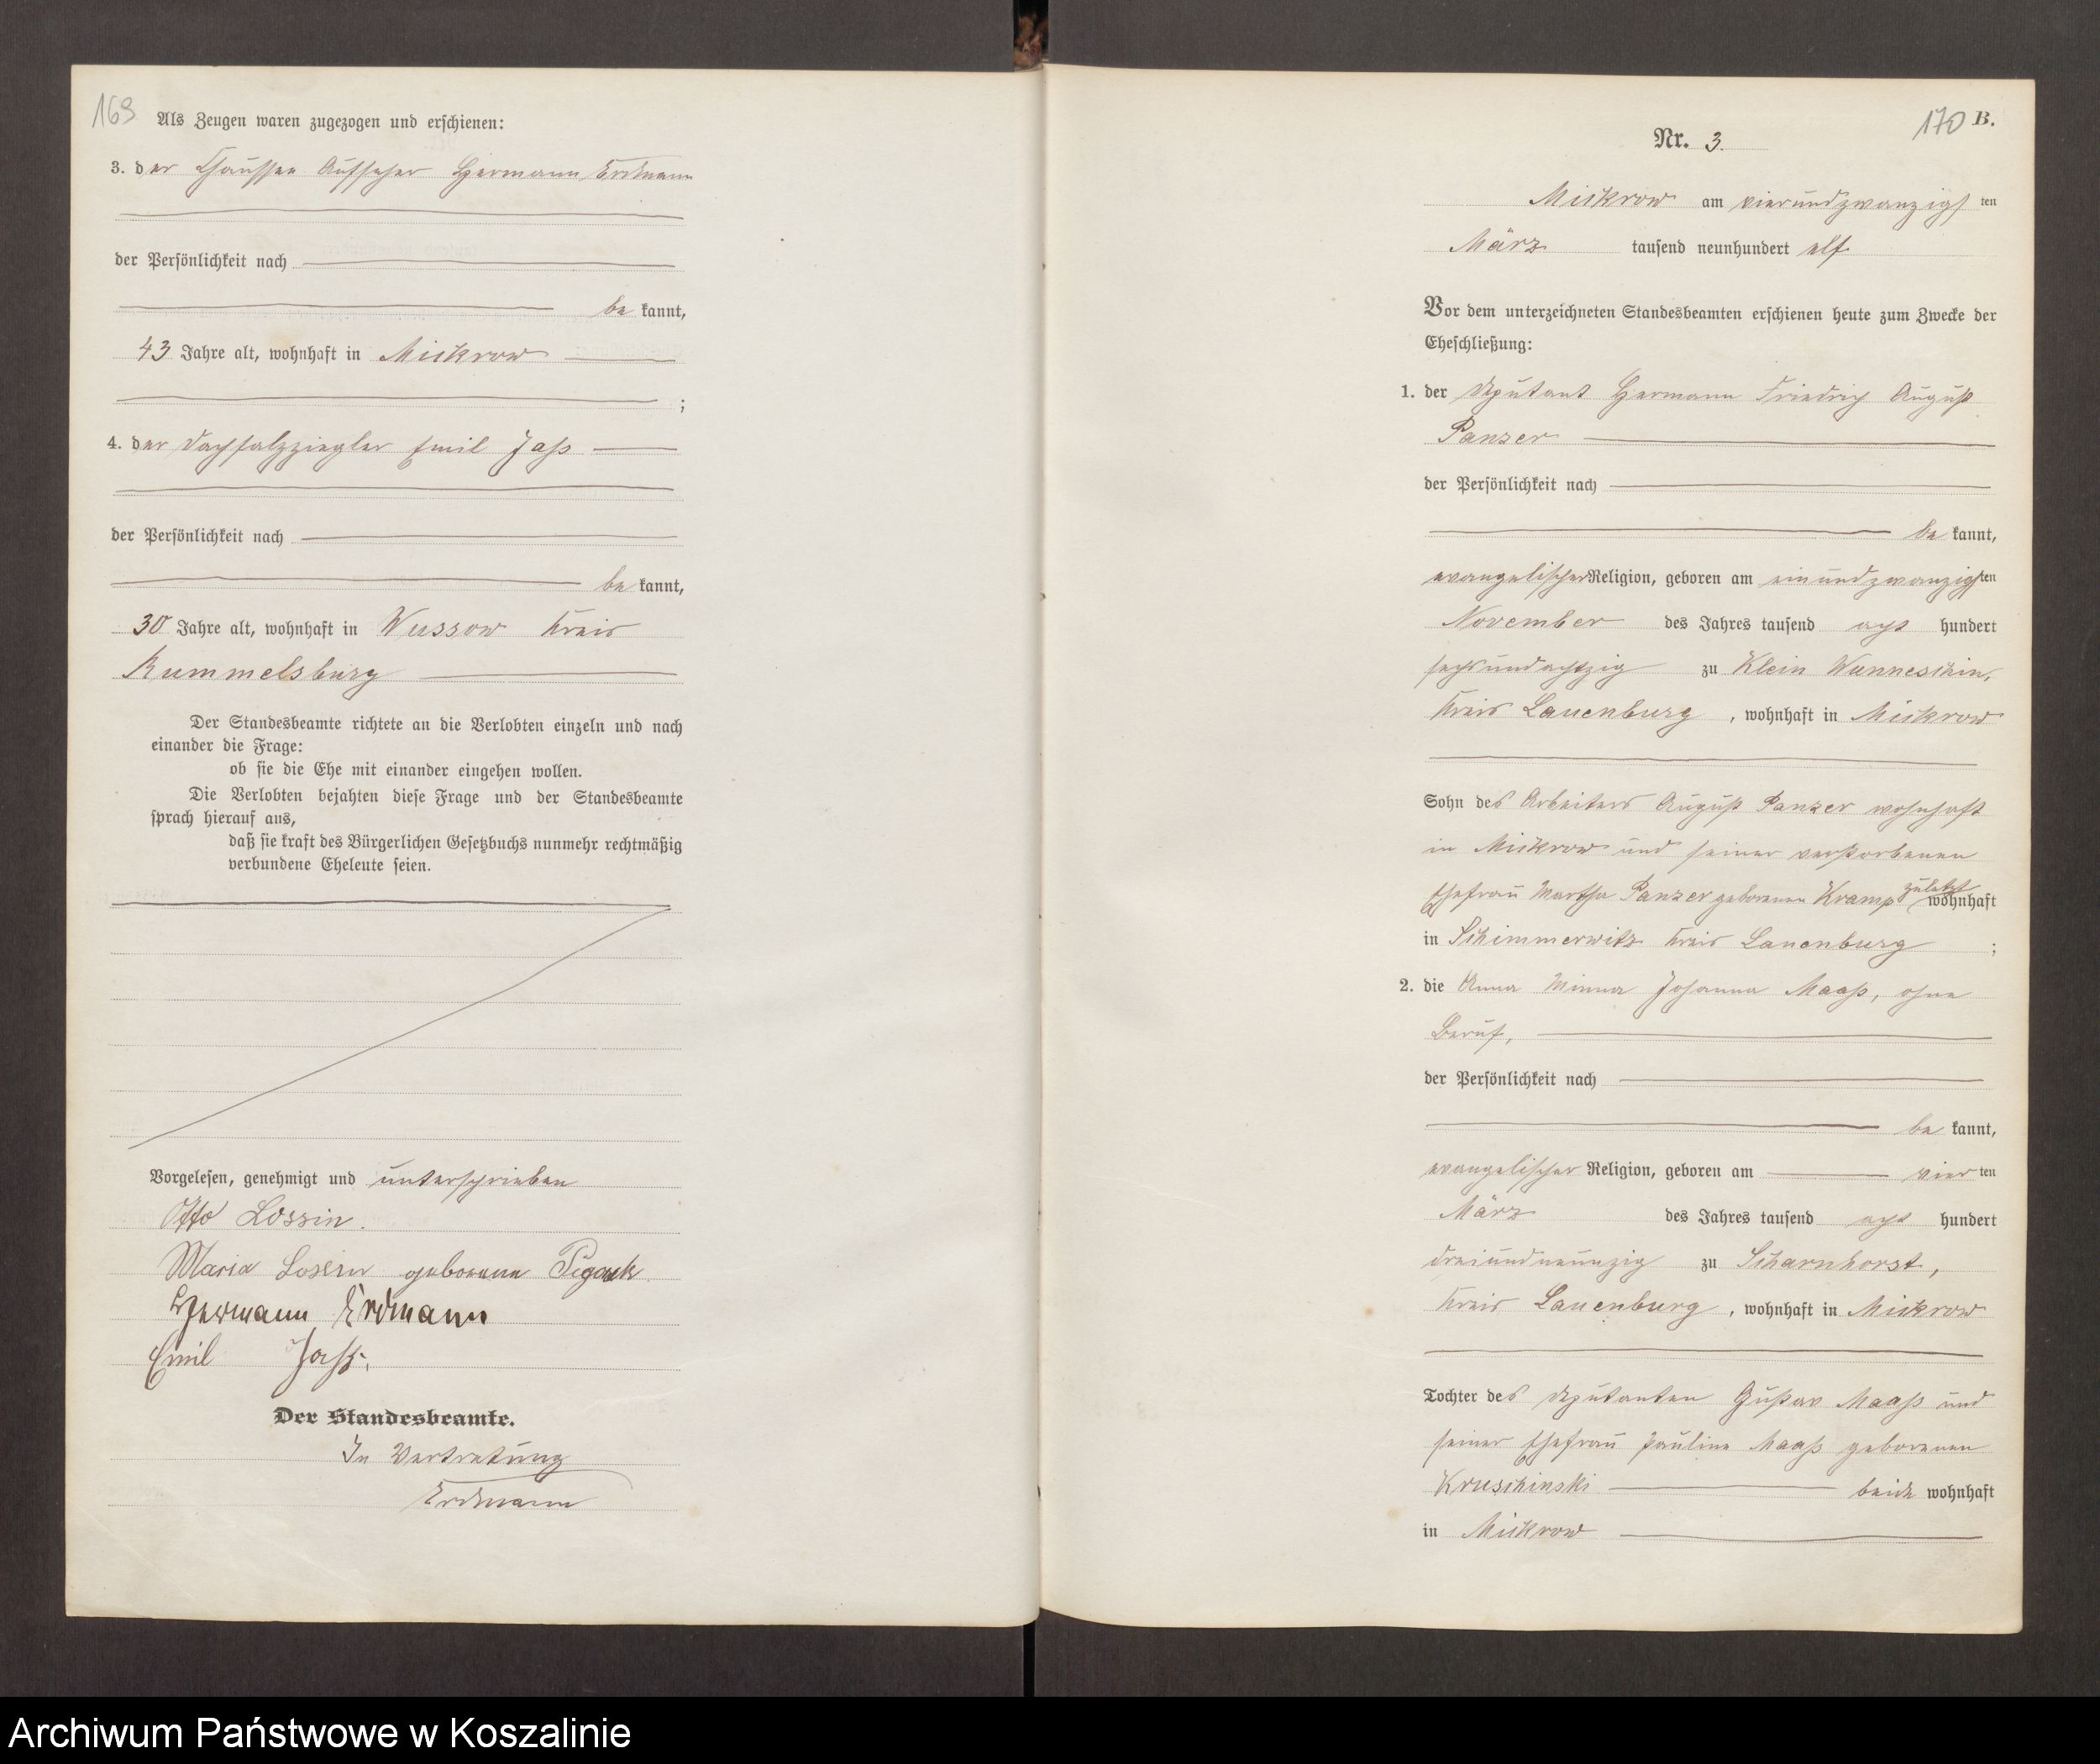 169
Als Zeugen waren zugezogen und erschienen:
3. der Chaussee Aufseher Hermann Erdmann
der Persönlichkeit nach
be kannt,
43 Jahre alt, wohnhaft in Mickrow
;
4. der Dachfalzziegler Emil Jaß
der Persönlichkeit nach
be kannt,
30 Jahre alt, wohnhaft in Wussow Kreis
Rummelsburg
Der Standesbeamte richtete an die Verlobten einzeln und nach
einander die Frage:
ob sie die Ehe mit einander eingehen wollen.
Die Verlobten bejahten diese Frage und der Standesbeamte
sprach hierauf aus,
daß sie kraft des Bürgerlichen Gesetzbuchs nunmehr rechtmäßig
verbundene Eheleute seien.
Vorgelesen, genehmigt und unterschrieben
Otto Lossin.
Maria Lossin geborene
Hermann Erdmann
Emil Jaß.
Der Standesbeamte.
In Vertretung
Erdmann
170 B.
Nr. 3.
Mickrow am vierundzwanzigsten
März tausend neunhundert elf
Vor dem unterzeichneten Standesbeamten erschienen heute zum Zwecke der
Eheschließung:
1. der Deputant Hermann Friedrich August
Panzer
der Persönlichkeit nach
be kannt,
evangelischer Religion, geboren am einundzwanzigsten
November des Jahres tausend acht hundert
sechsundachtzig zu Klein Wunneschin,
Kreis Lauenburg, wohnhaft in Mickrow
Sohn des Arbeiters August Panzer wohnhaft
in Mickrow und seiner verstorbenen
Ehefrau Martha Panzer geborenen Kramp zuletzt wohnhaft
in Schimmerwitz Kreis Lauenburg ;
2. die Anna Minna Johanna Maaß, ohne
Beruf,
der Persönlichkeit nach
be kannt,
evangelischer Religion, geboren am vierten
März des Jahres tausend acht hundert
dreiundneunzig zu Scharnhorst,
Kreis Lauenburg, wohnhaft in Mickrow
Tochter des Deputanten Gustav Maaß und
seiner Ehefrau Pauline Maaß geborenen
Kruschinski beide wohnhaft
in Mickrow
Archiwum Państwowe w Koszalinie